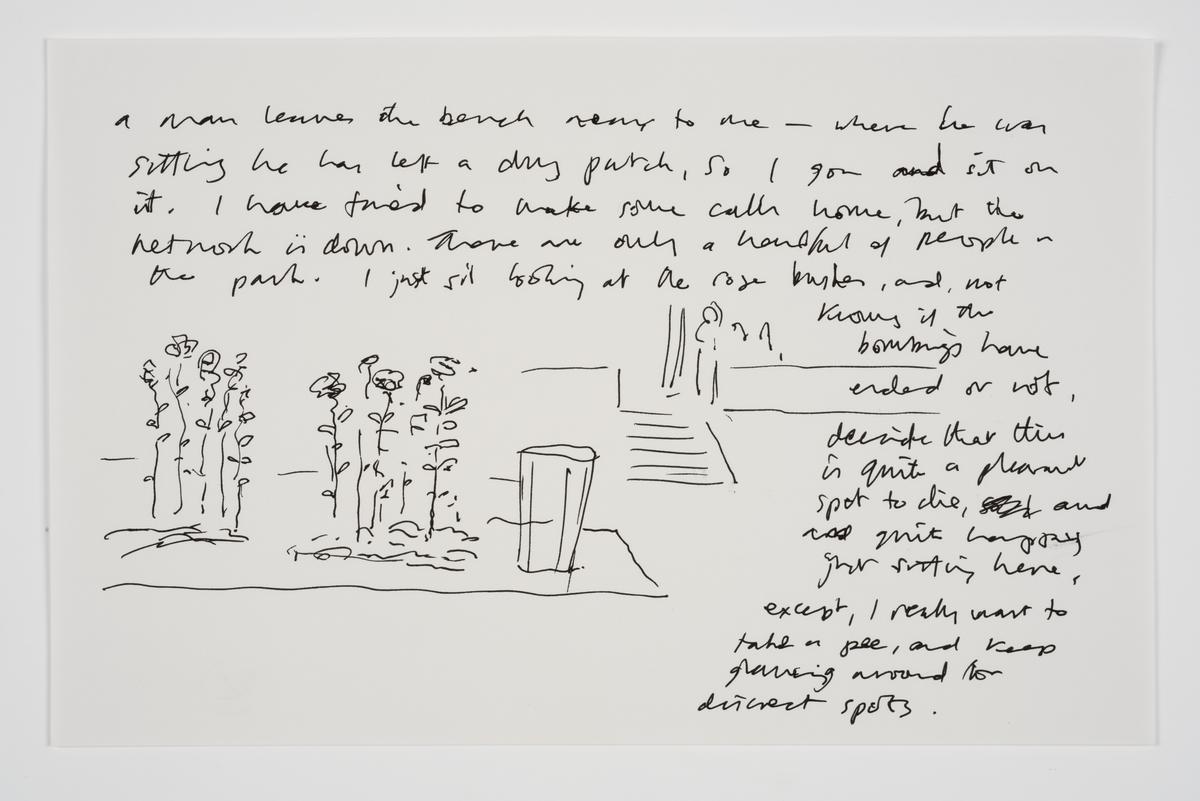 a man leaves the bench near to me — where he was
sitting he has left a dry patch, so I go and sit on
it. I have tried to make some calls home, but the
network is down. There are only a handful of people in
the park. I just sit looking at the rose bushes, and, not
knowing if the
bombings have
ended or not,
decide that this
is quite a pleasant
spot to die, and
quite happy
just sitting here,
except, I really want to
take a pee, and keep
glancing around for
discreet spots.